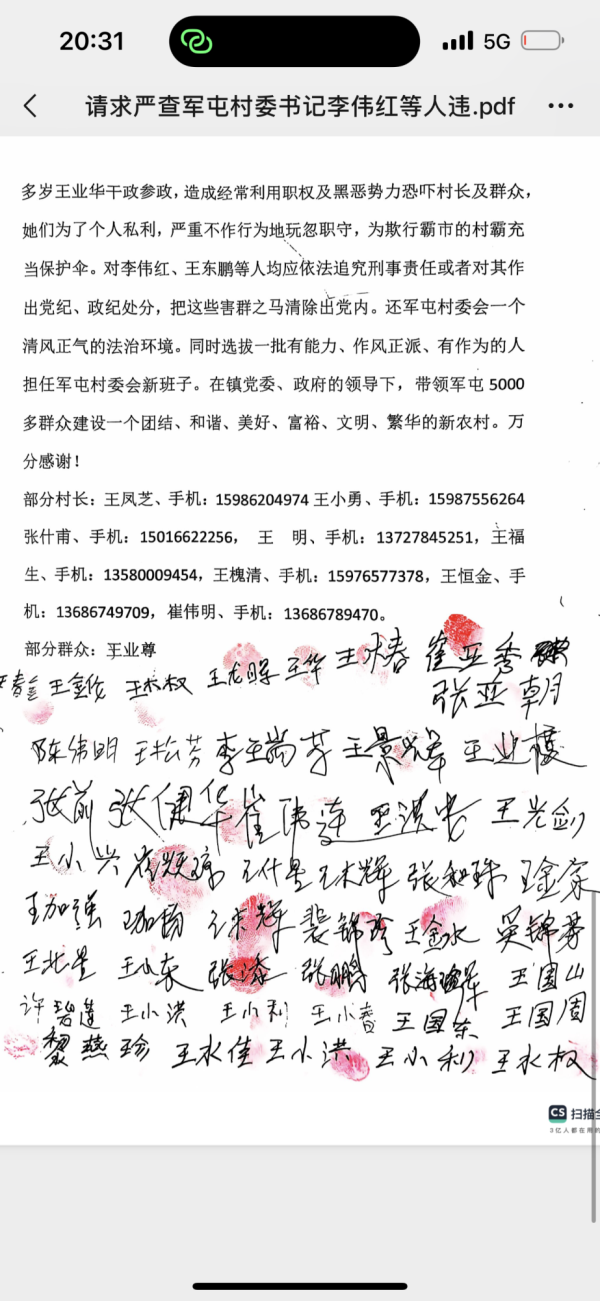 20:31
5G
请求严查军屯村委书记李伟红等人违.pdf
多岁王业华干政参政，造成经常利用职权及黑恶势力恐吓村长及群众，
她们为了个人私利，严重不作行为地玩忽职守，为欺行霸市的村霸充
当保护伞。对李伟红、王东鹏等人均应依法追究刑事责任或者对其作
出党纪、政纪处分，把这些害群之马清除出党内。还军屯村委会一个
清风正气的法治环境。同时选拔一批有能力、作风正派、有作为的人
担任军屯村委会新班子。在镇党委、政府的领导下，带领军屯 5000
多群众建设一个团结、和谐、美好、富裕、文明、繁华的新农村。万
分感谢！
部分村长：王凤芝、手机：15986204974 王小勇、手机：15987556264
张什甫、手机：15016622256， 王　明、手机：13727845251，王福
生、手机：13580009454，王槐清、手机：15976577378，王恒金、手
机：13686749709，崔伟明、手机：13686789470。
部分群众：王业尊
王龙晖 王华 崔亚秀
张亚朝
陈伟明 王松芳
张前 张健华 崔伟连 王光剑
王小兴 张和珠
王加强 裴锦珍 王金水 吴锦芬
王北星 王小东 张添 张鹏 王国山
许碧莲 王小洪 王小利 王小春 王国东 王国周
黎燕珍 王水佳 王小洪 王小利 王水权
CS 扫描全
3亿人都在用的